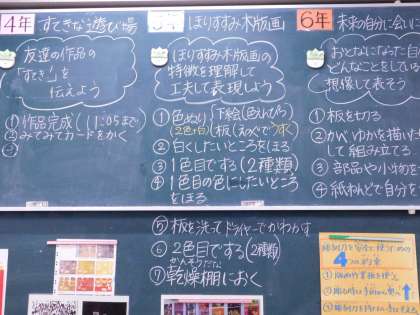 4年 すてきな遊び場
友達の作品の
「すてき!」を
伝えよう
①作品完成(11:05まで)
②みてみてカードをかく
5年 ほりすすみ木版画
ほりすすみ木版画の
特徴を理解して
工夫して表現しよう
①色ぬり
下絵(色えんぴつ)
(2色+白)
板(えのぐでうすく)
②白くしたいところをほる
③1色目でする(2種類)
④1色目の色にしたいところ
をほる
⑤板を洗ってドライヤーでかわかす
⑥2色目でする(2種類)
かんそうだな
⑦乾燥棚におく
6年 未来の自分に会い
おとなになった自
どんなことをしている
想像して表そう
①板を切る
②かべ、ゆかを描い
して組み立てる
③部品や小物を
④紙ねんどで自分を
彫刻刀を安全に使うための
4つの約束
①版画作業板を使う